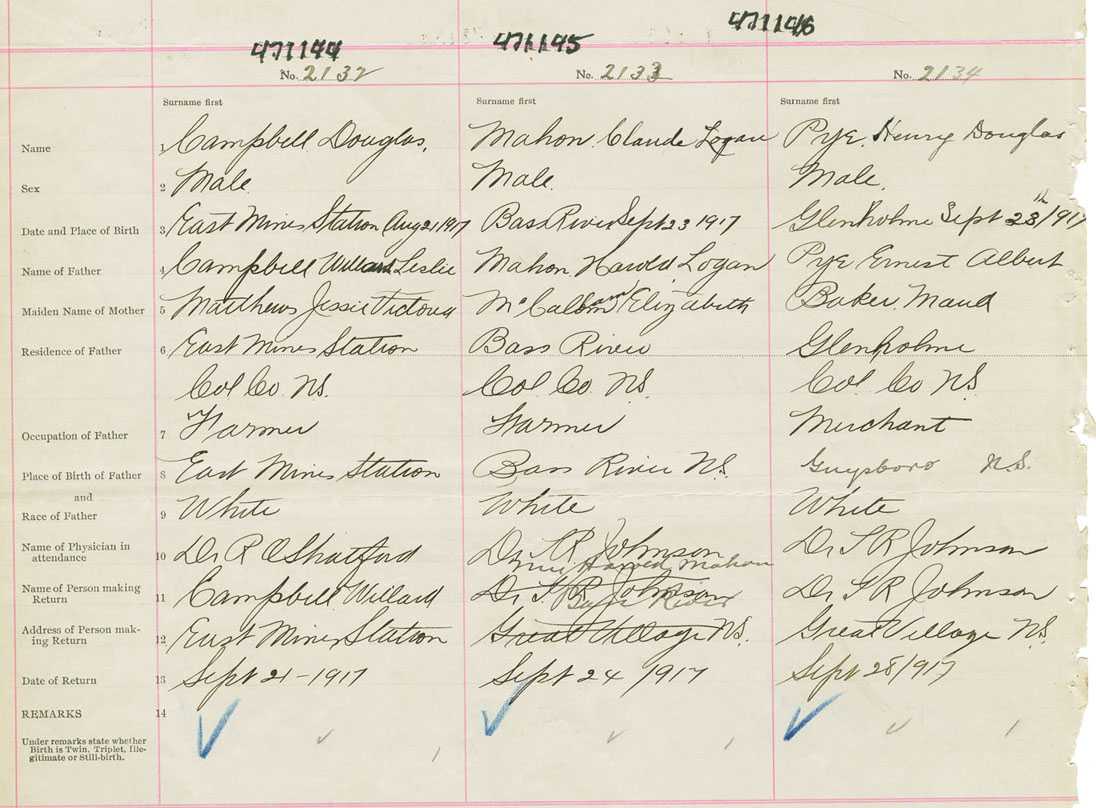 471144 471145 471146
No. 2132 No. 2133 No. 2134
Surname first Surname first Surname first
Name 1 Campbell Douglas, Mahon Claude Logan Pye, Henry Douglas
Sex 2 Male. Male. Male.
Date and Place of Birth 3 East Mines Station Aug 21 1917 Bass River Sept 23 1917 Glenholme Sept 28th/1917
Name of Father 4 Campbell Willard Leslie Mahon Harold Logan Pye Ernest Albert
Maiden Name of Mother 5 Matthews Jessie Victoria Elizabeth Baker Maud
Residence of Father 6 East Mines Station Bass River Glenholme
Col Co. N.S. Col. Co. N.S. Col. Co N.S.
Occupation of Father 7 Farmer Farmer Merchant
Place of Birth of Father 8 East Mines Station Bass River N.S. Guysboro N.S.
and
Race of Father 9 White White White
Name of Physician in
attendance 10 Dr R O Shatford Dr T R Johnson Dr T R Johnson
Harold Mahon
Name of Person making
Return 11 Campbell Willard Dr T R Johnson Dr T R Johnson
Bass River
Address of Person mak-
ing Return 12 East Mines Station Great Village N.S. Great Village N.S.
Date of Return 13 Sept 21-1917 Sept 24/1917 Sept 28/1917
REMARKS 14
Under remarks state whether
Birth is Twin, Triplet, Ille-
gitimate or Still-birth.